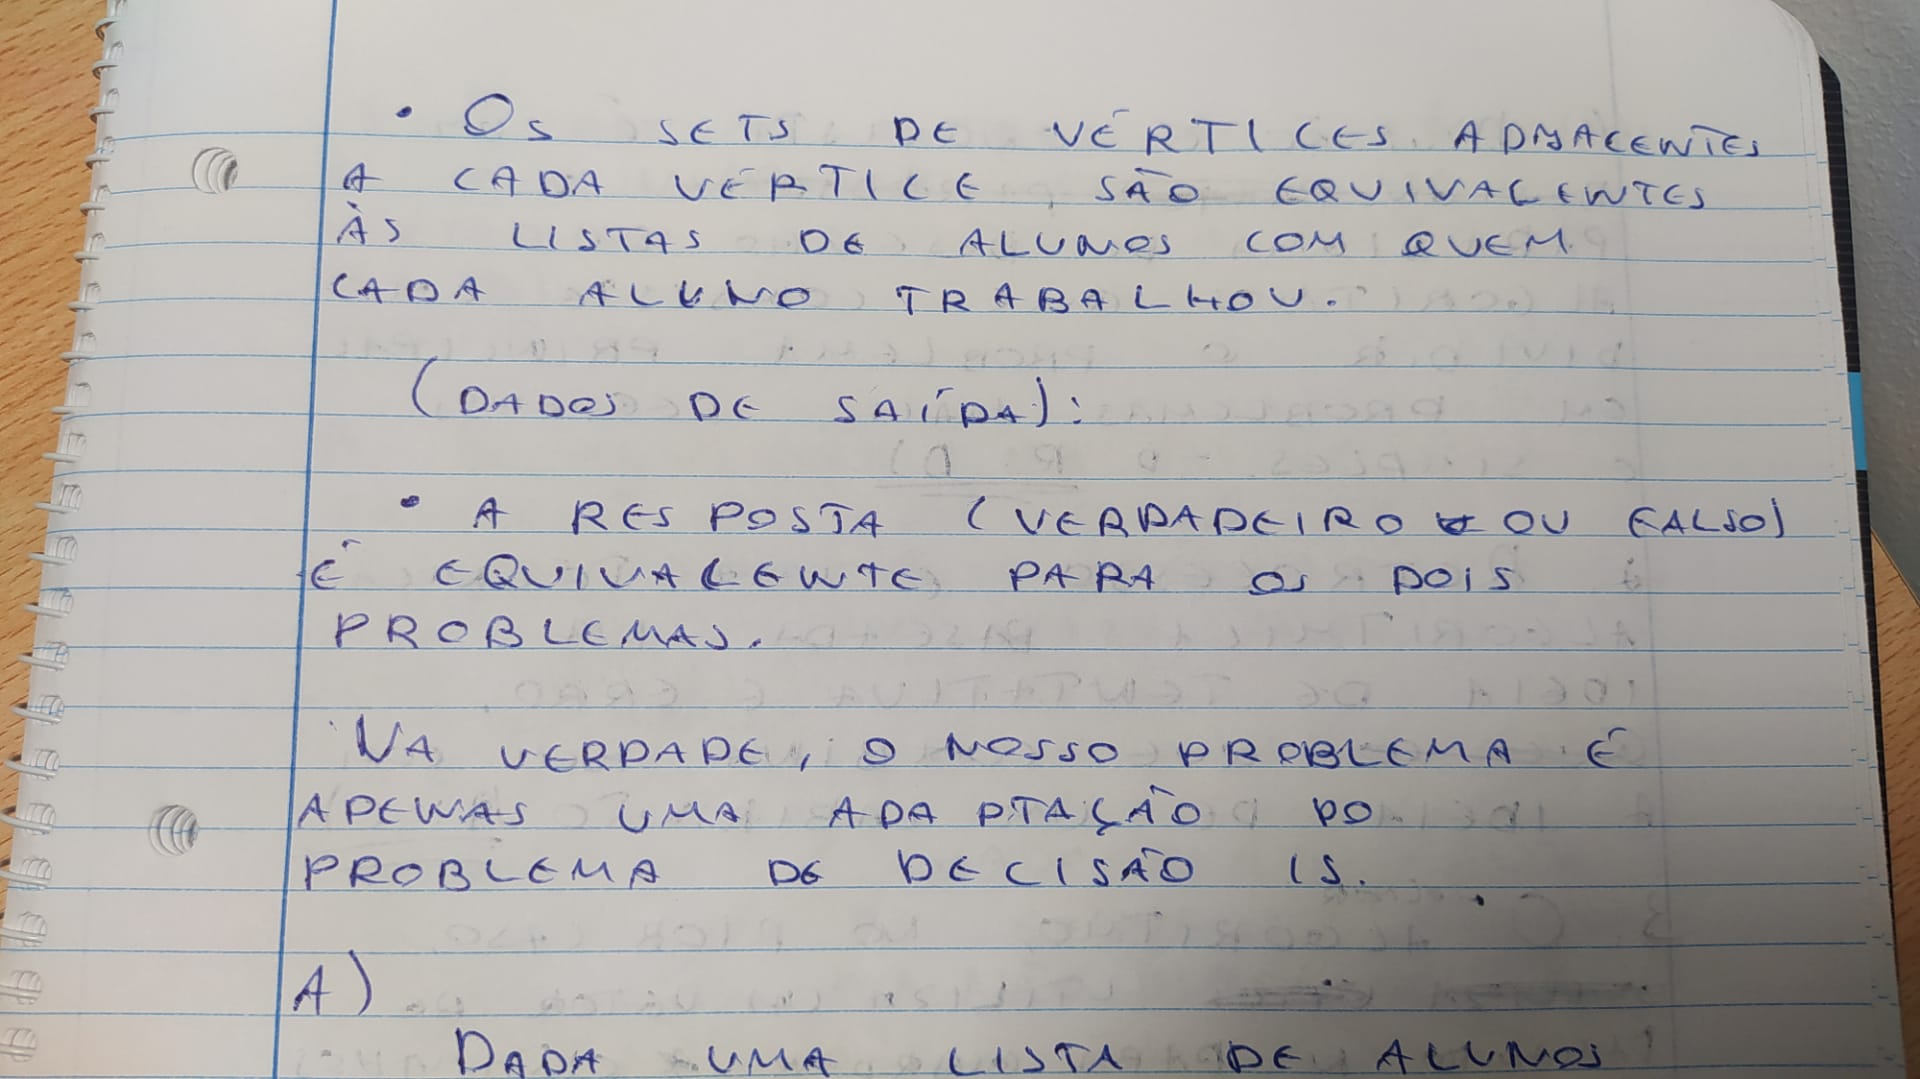 • Os SETS DE VÉRTICES ADJACENTES
A CADA VÉRTICE SÃO EQUIVALENTES
ÀS LISTAS DE ALUNOS COM QUEM
CADA ALUNO TRABALHOU.
(DADOS DE SAÍDA):
• A RESPOSTA (VERDADEIRO OU FALSO)
É EQUIVALENTE PARA OS DOIS
PROBLEMAS.
NA VERDADE, O NOSSO PROBLEMA É
APENAS UMA ADAPTAÇÃO DO
PROBLEMA DE DECISÃO IS.
A)
DADA UMA LISTA DE ALUNOS